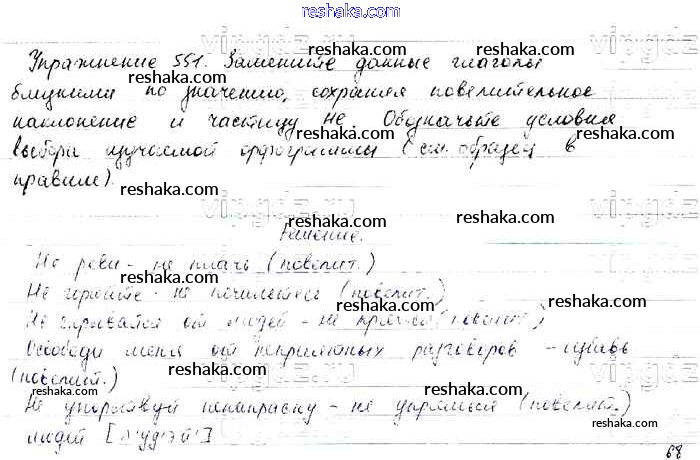 reshaka.com
Упражнение 551. Замените данные глаголы
близкими по значению, сохраняя повелительное
наклонение и частицу не. Обозначьте условия
выбора изучаемой орфограммы (см. образец в
правиле).
Решение.
Не реви - не плачь (повелит.)
Не горюйте - не печальтесь (повелит.)
Не скрывайся от людей - не прячься (повелит.)
Освободи меня от неприятных разговоров - избавь
(повелит.)
Не упорствуй понапрасну - не упрямься (повелит.)
людей [л'уд'эй']
68